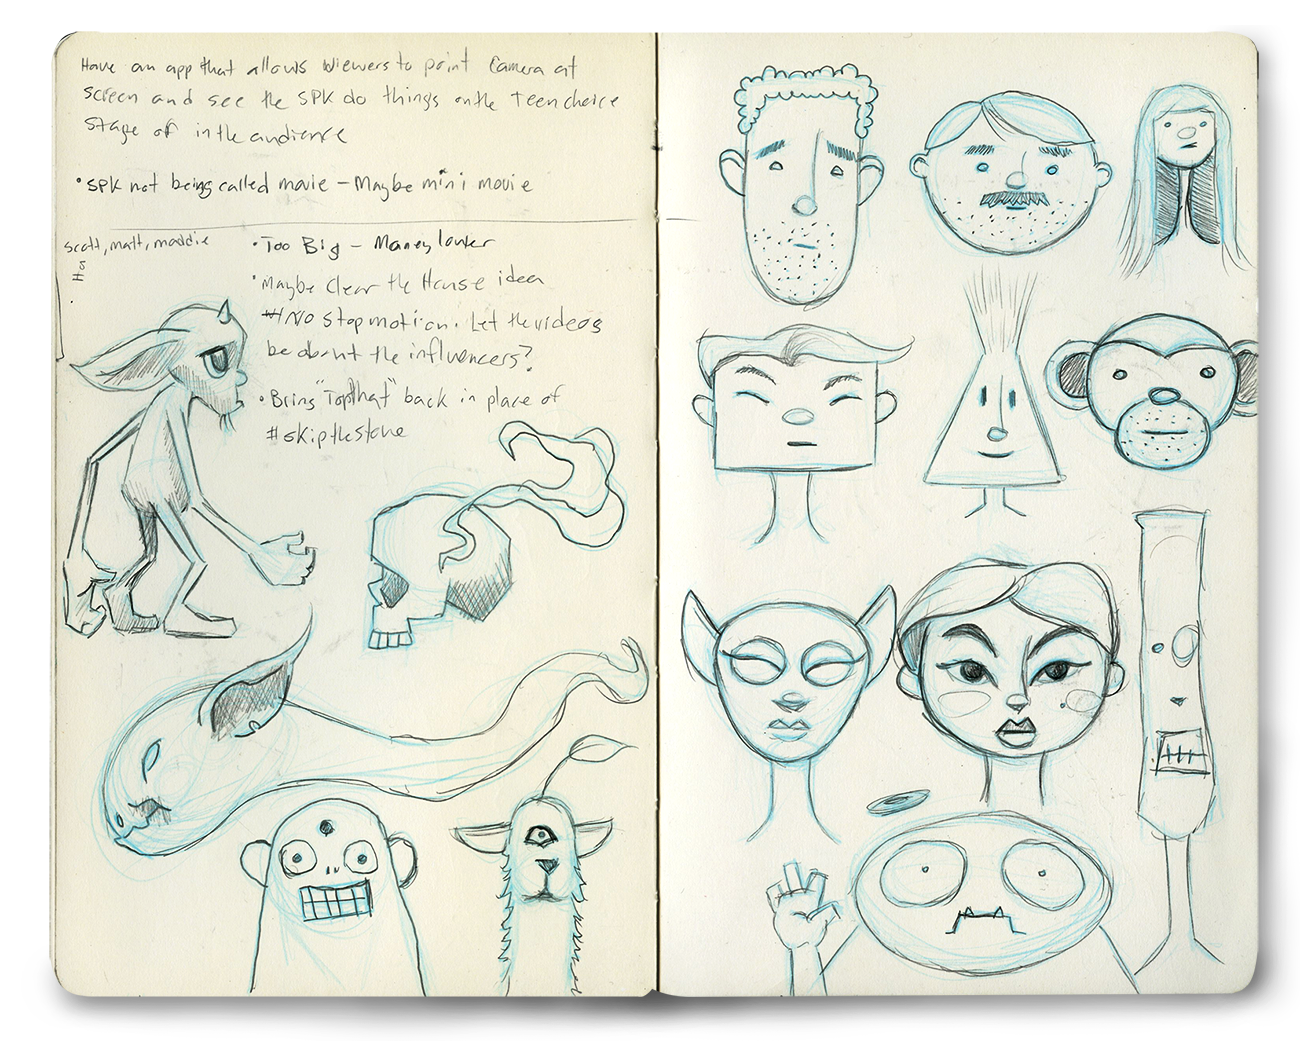 Have an app that allows viewers to point camera at
screen and see the SPK do things on the Teen choice
stage or in the audience
• SPK not being called movie - Maybe mini movie
scott, matt, maddie
• Too Big - Money lower
• Maybe clear the House idea
No stop motion. Let the videos
be about the influencers?
• Bring "Top That" back in place of
#skipthestone